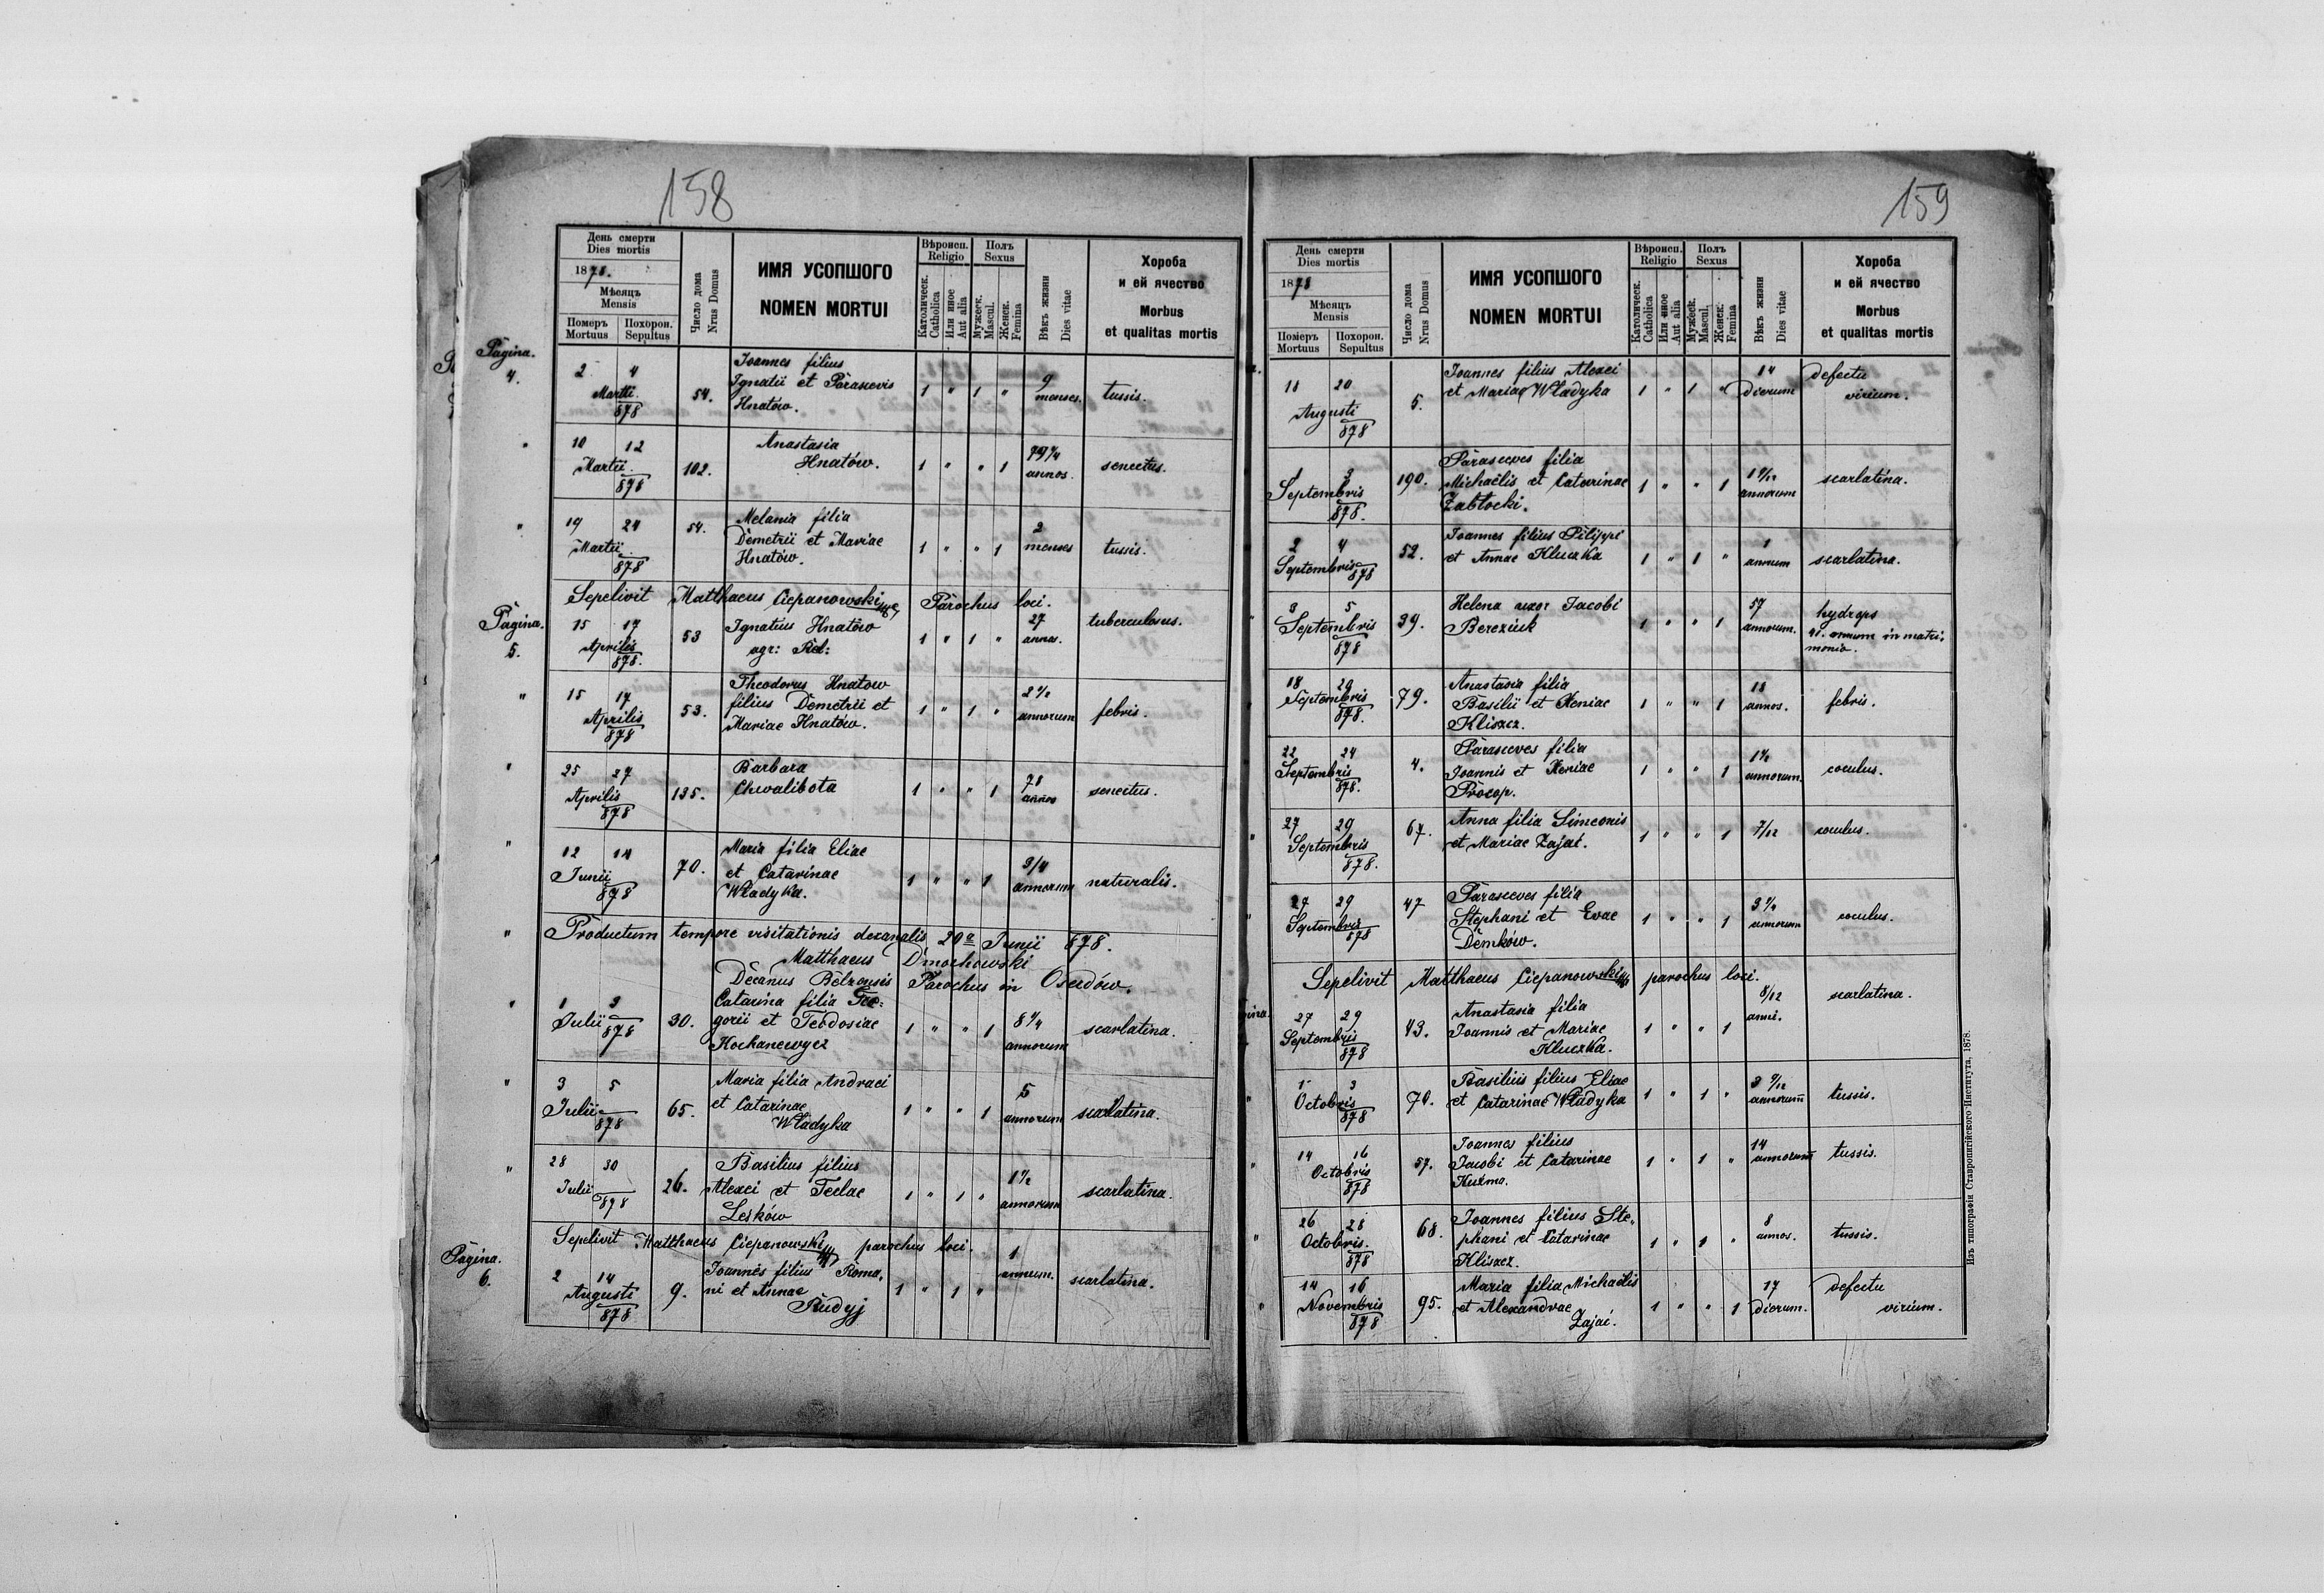 158
День смерти
Dies mortis
1878.
Мѣсяцъ
Mensis
Померъ Похорон.
Mortuus Sepultus
Число дома
Nrus Domus
ИМЯ УСОПШОГО
NOMEN MORTUI
Вѣроисп.
Religio
Католическ.
Catholica
Или иное
Aut alia
Полъ
Sexus
Мужеск.
Mascul.
Женск.
Femina
Вѣкъ жизни
Dies vitae
Хороба
и ей ячество
Morbus
et qualitas mortis
Pagina. 4.
2 4 Martii 878 54. Joannes filius
Ignatii et Parascevis
Hnatów. 1 " 1 " 9 menses. tussis.
" 10 12 Martii 878 102. Anastasia
Hnatów. 1 " " 1 annos. senectus.
" 19 24 Martii 878 54. Melania filia
Demetrii et Mariae
Hnatów. 1 " " 1 2 menses tussis.
Sepelivit Matthaeus Ciepanowski Parochus loci.
Pagina. 5.
15 17 Aprilis 878. 53 Ignatius Hnatów
agr: Rel: 1 " 1 " 27 annos. tuberculosus.
" 15 17 Aprilis 878 53. Theodorus Hnatow
filius Demetrii et
Mariae Hnatów. 1 " 1 " 2 1/2 annorum febris.
" 25 27 Aprilis 878 135. Barbara
Chwalibota 1 " " 1 78 annos senectus.
" 12 14 Junii 878 70. Maria filia Eliae
et Catarinae
Władyka. 1 " " 1 3/4 annorum naturalis.
" Productum tempore visitationis decanalis 20a Junii 878.
Matthaeus Dmochowski
Decanus Belzensis Parochus in Oserdów.
" 1 3 Julii 878 30. Catarina filia
gorii et Teodosiae
Kochanewycz 1 " " 1 8 1/4 annorum scarlatina.
" 3 5 Julii 878 65. Maria filia Andraei
et Catarinae
Władyka 1 " " 1 5 annorum scarlatina.
" 28 30 Julii 878 26. Basilius filius
Alexei et Teclae
Leśków 1 " 1 " 1 1/2 annorum scarlatina.
Sepelivit Matthaeus Ciepanowski parochus loci.
Pagina. 6.
2 14 Augusti 878 9. Joannes filius Roma,
ni et Annae
Rudyj 1 " 1 " 1 annum. scarlatina.
159
День смерти
Dies mortis
1878
Мѣсяцъ
Mensis
Померъ Похорон.
Mortuus Sepultus
Число дома
Nrus Domus
ИМЯ УСОПШОГО
NOMEN MORTUI
Вѣроисп.
Religio
Католическ.
Catholica
Или иное
Aut alia
Полъ
Sexus
Мужеск.
Mascul.
Женск.
Femina
Вѣкъ жизни
Dies vitae
Хороба
и ей ячество
Morbus
et qualitas mortis
20 Augusti 878 5. Joannes filius Alexei
et Mariae Władyka 1 " 1 " 14 dierum defectu
virium.
1 3 Septembris 878. 190. Parasceves filia
Michaëlis et Catarinae
Zabłocki. 1 " " 1 annorum scarlatina.
2 4 Septembris 878 52. Joannes filius Pilippi
et Annae Kluczka 1 " 1 " 1 annum scarlatina.
" 3 5 Septembris 878 39. Helena uxor Jacobi
Bereziuk 1 " " 1 57 annorum. hydrops
annum in matri,
monio.
" 18 29 Septembris 878. 79. Anastasia filia
Basilii et Xeniae
Kliszcz. 1 " " 1 annos. febris.
22 24 Septembris 878. 4. Parasceves filia
Joannis et Xeniae
Procop. 1 " " 1 1 1/2 annorum. coculus.
" 27 29 Septembris 878. 67. Anna filia Simeonis
et Mariae Zajać. 1 " " 1 7/12 coculus.
" 27 29 Septembris 878 47 Parasceves filia
Stephani et Evae
Demków. 1 " " 1 3 1/2 annorum coculus.
Sepelivit Matthaeus Ciepanowski parochus loci.
27 29 Septembris 878 43. Anastasia filia
Joannis et Mariae
Kluczka. 1 " " 1 8/12 anni. scarlatina.
" 1 3 Octobris 878 70. Basilius filius Eliae
et Catarinae Władyka 1 " 1 " annorum tussis.
" 14 16 Octobris 878 57. Joannes filius
Jacobi et Catarinae
Kuzma. 1 " 1 " 14 annorum tussis.
" 26 28 Octobris. 878 68. Joannes filius Ste,
phani et Catarinae
Kliszcz. 1 " 1 " 8 annos. tussis.
" 14 16 Novembris 878 95. Maria filia Michaëlis
et Alexandrae
Zajać. 1 " " 1 17 dierum. defectu
virium.
Изъ типографіи Ставропигійского Института. 1878.